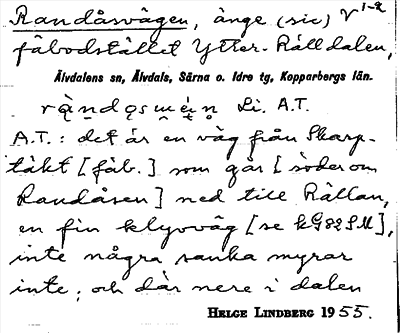 Randåsvägen, änge (sic) V 1-2
fäbodstället Ytter-Rålldalen,
Älvdalens sn, Älvdals, Särna o. Idre tg, Kopparbergs län.
Li. A.T.
A.T.: det är en väg från Skarp-
täkt [fäb.] som går [söder om
Randåsen] ned till Rållan,
en fin klyvväg [se kG82SM],
inte några sanka myrar
inte; och där nere i dalen
HELGE LINDBERG 1955.